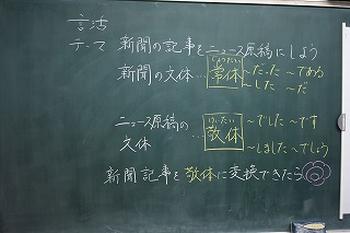 言活
テーマ 新聞の記事をニュース原稿にしよう
じょうたい
新聞の文体…常体 ～だった ～である
～した ～だ
けいたい
ニュース原稿の…敬体 ～でした ～です
文体 ～しました ～でしょう
新聞記事を敬体に変換できたら